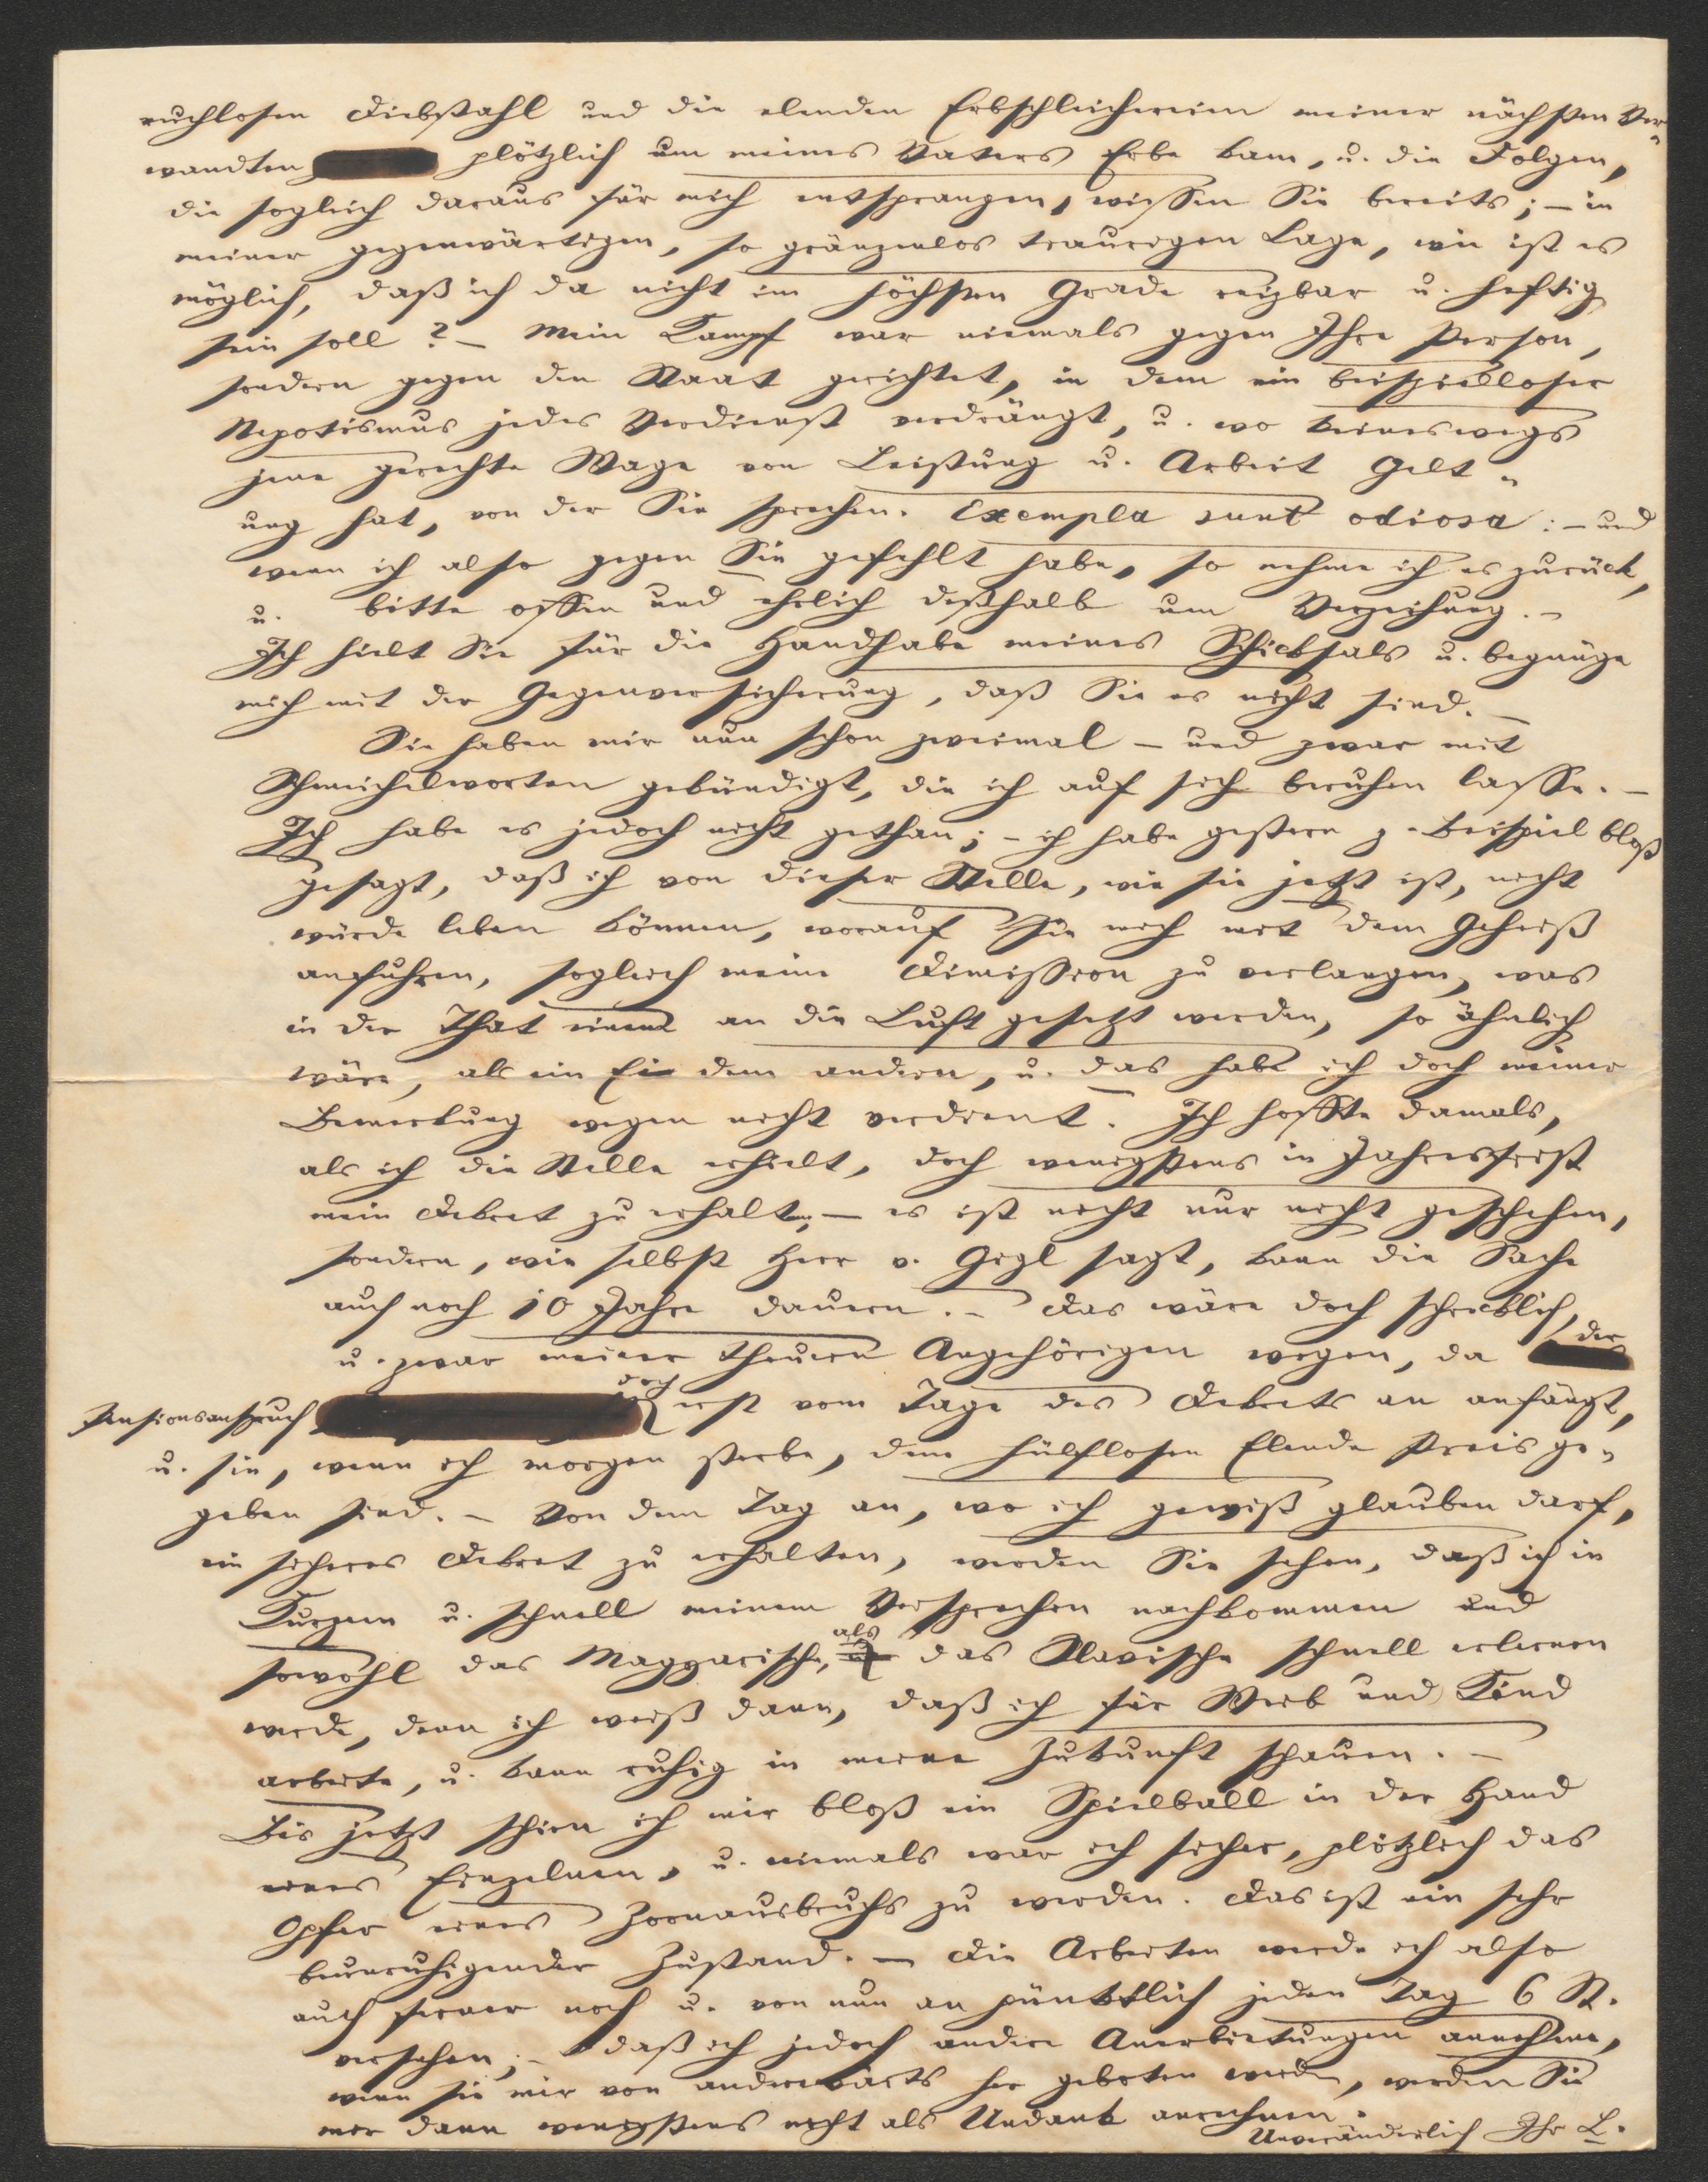 ruchlosen Diebstahl und die elenden Erbschleichereien meiner nächsten Ver„
wandten plötzlich um meines Vaters Erbe kam, u. die Folgen,
die sogleich daraus für mich entsprangen, wissen Sie bereits; – in
meiner gegenwärtigen, so gränzenlos traurigen Lage, wie ist es
möglich, daß ich da nicht im höchsten Grade reizbar u. heftig
sein soll? – Mein Kampf war niemals gegen Ihre Person,
sondern gegen den Staat gerichtet, in dem ein beispielloser
Nepotismus jedes Verdienst verdrängt, u. wo keineswegs
jene gerechte Wage von Leistung u. Arbeit Gelt„
ung hat, von der Sie sprechen. Exempla sunt odiosa: – und
wenn ich also gegen Sie gefehlt habe, so nehme ich es zurück,
u. bitte offen und ehrlich deßhalb um Verzeihung. –
Ich hielt Sie für die Handhabe meines Schicksals u. begnüge
mich mit der Gegenversicherung, daß Sie es nicht sind. –
Sie haben mir nun schon zweimal – und zwar mit
Schmeichelworten gekündigt, die ich auf sich beruhen lasse. –
Ich habe es jedoch nicht gethan; – ich habe gestern z. Beispiel bloß
gesagt, daß ich von dieser Stelle, wie sie jetzt ist, nicht
würde leben können, worauf Sie mich mit dem Geheiß
anfuhren, sogleich meine Dimission zu verlangen, was
in der That einem an die Luft gesetzt werden, so ähnlich
wäre, als ein Ei dem andern, u. das habe ich doch meiner
Bemerkung wegen nicht verdient. Ich hoffte damals,
als ich die Stelle erhielt, doch wenigstens in Jahresfrist
mein Dekret zu erhalten; – es ist nicht nur nicht geschehen,
sondern, wie selbst Herr v. Gegl sagt, kann die Sache
auch noch 10 Jahre dauern. – Das wäre doch schrecklich,
u. zwar meiner theuern Angehörigen wegen, da der
Pensionsanspruch doch erst vom Tage des Dekrets an anfängt,
u. sie, wenn ich morgen sterbe, dem hülflosen Elende Preis ge„
geben sind. – Von dem Tag an, wo ich gewiß glauben darf,
ein sicheres Dekret zu erhalten, werden Sie sehen, daß ich in
Kurzem u. schnell meinem Versprechen nachkommen und
sowohl das Magyarische, als das Slavische schnell erlernen
werde, denn ich weiß dann, daß ich für Weib und Kind
arbeite, u. kann ruhig in meine Zukunft schauen. –
Bis jetzt schien ich mir bloß ein Spielball in der Hand
eines Einzelnen, u. niemals war ich sicher, plötzlich das
Opfer eines Zornausbruchs zu werden. Das ist ein sehr
beunruhigender Zustand. – Die Arbeiten werde ich also
auch ferner noch u. von nun an pünktlich jeden Tag 6 St.
versehen; – daß ich jedoch andere Anerbietungen annehme,
wenn sie mir von anderwärts her geboten werden, werden Sie
mir dann wenigstens nicht als Undank anrechnen.
Unveränderlich Ihr L.